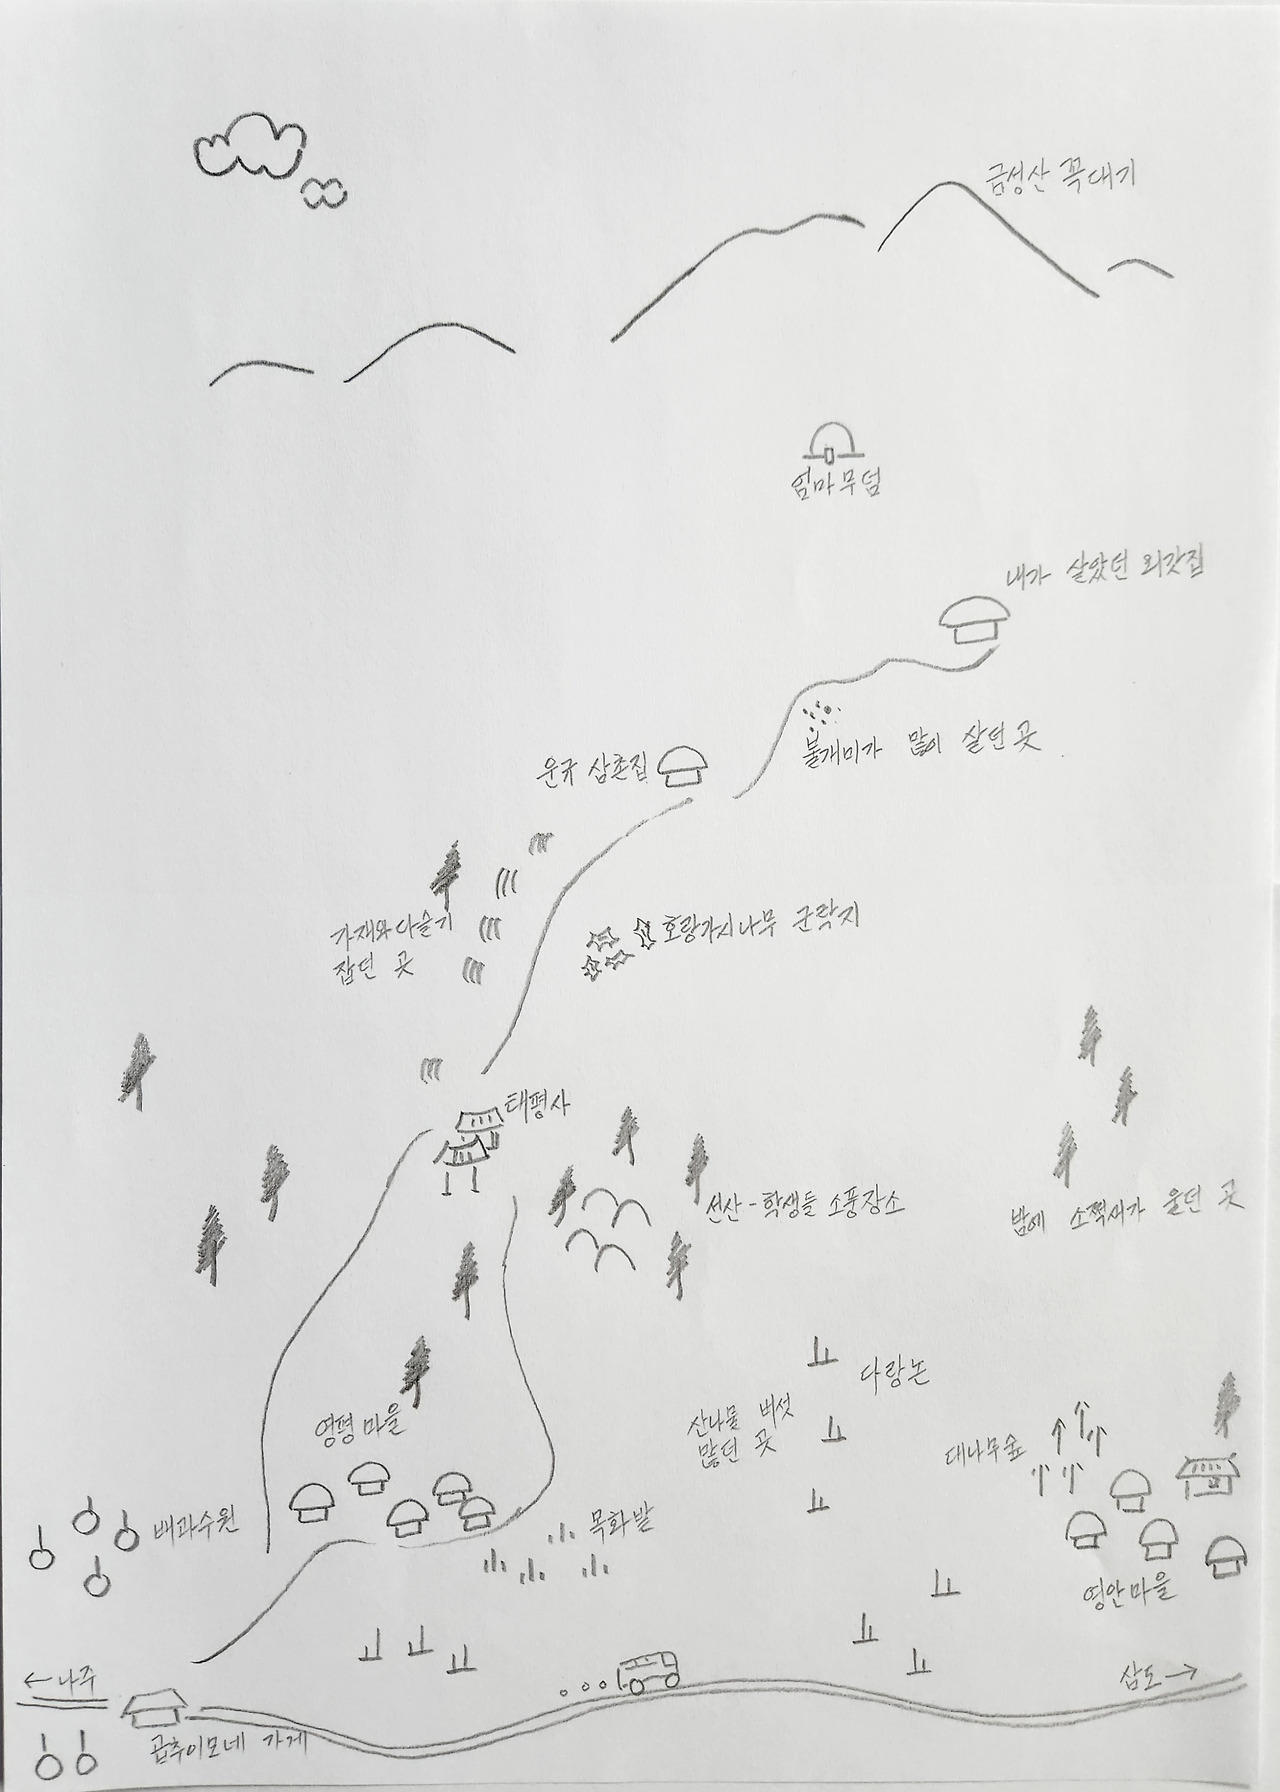 금성산 꼭대기
엄마무덤
내가 살았던 외갓집
불개미가 많이 살던 곳
운규 삼촌집
가재와 다슬기
잡던 곳
호랑가시나무 군락지
태평사
선산-학생들 소풍장소
밤에 소쩍새가 울던 곳
다랑논
산나물 버섯
많던 곳
영평마을
대나무숲
배과수원
목화밭
영안마을
←나주
삼도→
곱추이모네 가게